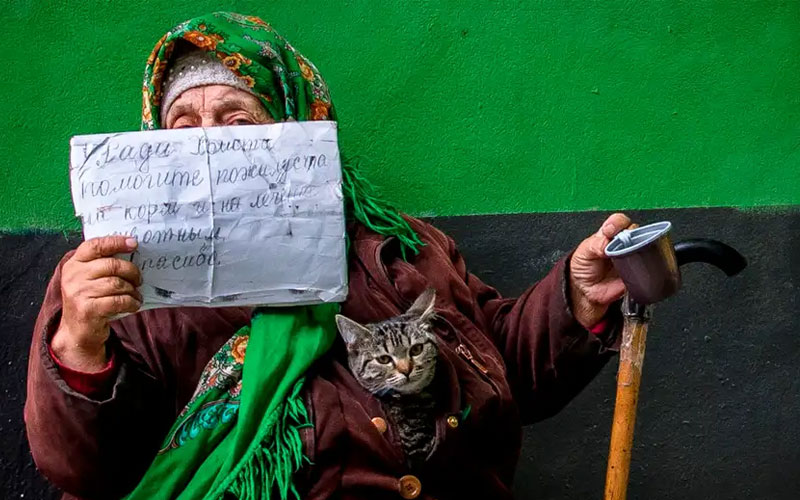 Ради Христа
помогите пожалуста
на корм и на лечен
животным
спасибо.